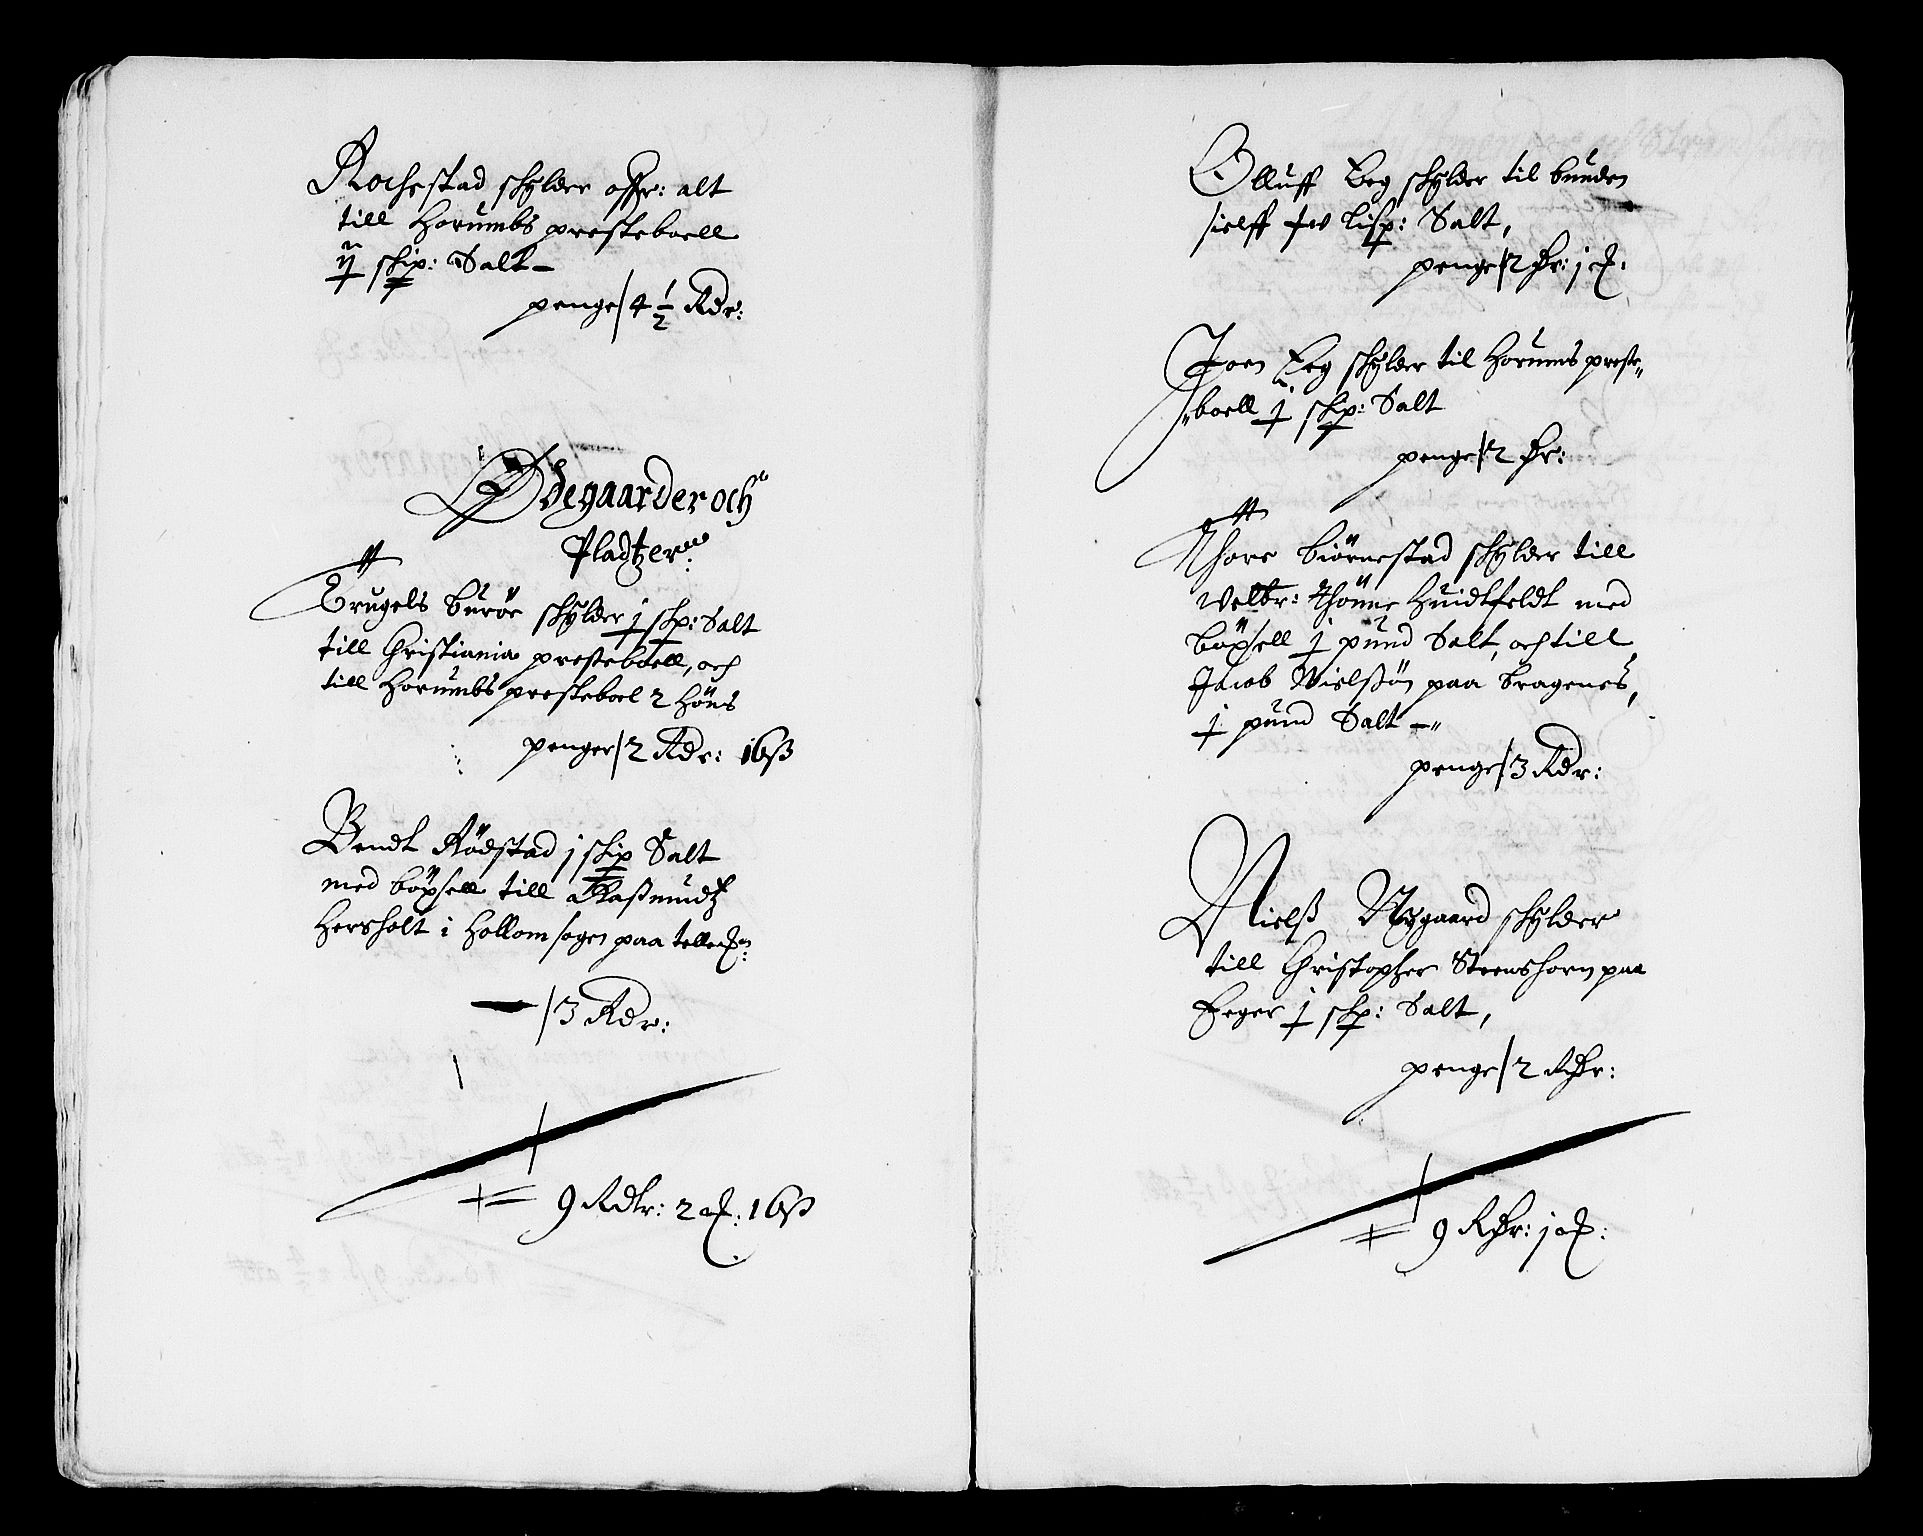 Rochestad schylder offr: alt
till Horumbs presteboell
ij skip: Salt –
penge / 4 1/2 Rdr:
Ødegaarder och
Pladtzer
Trugels Burøe schylder j skp: Salt
till Christiania presteboell, och
till Horumbs presteboel 2 Høns
penger / 2 Rdr: 16 ß
Bendt Rødstad j skip Salt
med böxsell till Raßmundtz
Hersholt i Hollom sogen paa
– / 3 Rdr:
9 Rdlr: 2 ort: 16 ß
Olluff Eeg schylder til bunden
sielff Lisp: Salt,
penge / 2 Dr: j ort:
Joen Eeg schylder til Horums preste„
„boell j skp: Salt
penge / 2 Dr:
Thore Biørnestad schylder till
Velbr: Thönne Huidtfeldt med
böxsell j pund Salt, och till
Jacob Nielßøn paa Bragenes,
j pund Salt –„
penge / 3 Rdr:
Nielß Nygaard schylder
till Christopher Steenshorn paa
Eeger j skp: Salt,
penge / 2 Rdr:
9 Rdr: j ort: